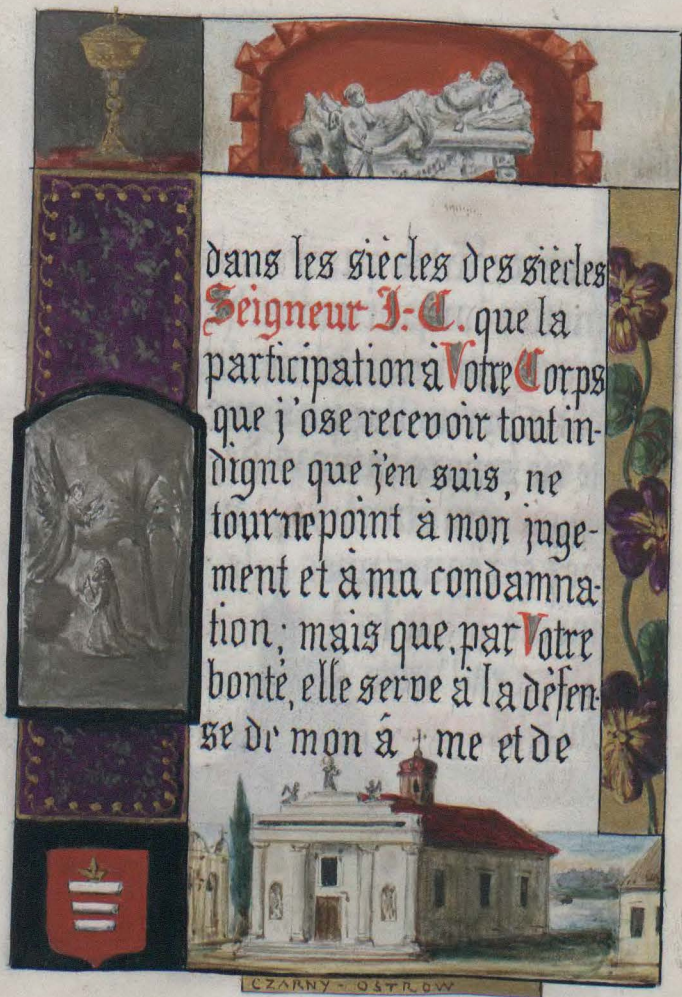 dans les siècles des siècles
Seigneur J.-C. que la
participation à Votre Corps
que j'ose recevoir tout in-
digne que j'en suis, ne
tourne point à mon juge-
ment et à ma condamna-
tion; mais que, par Votre
bonté, elle serve à la défen-
se de mon â me et de
CZARNY - OSTROW